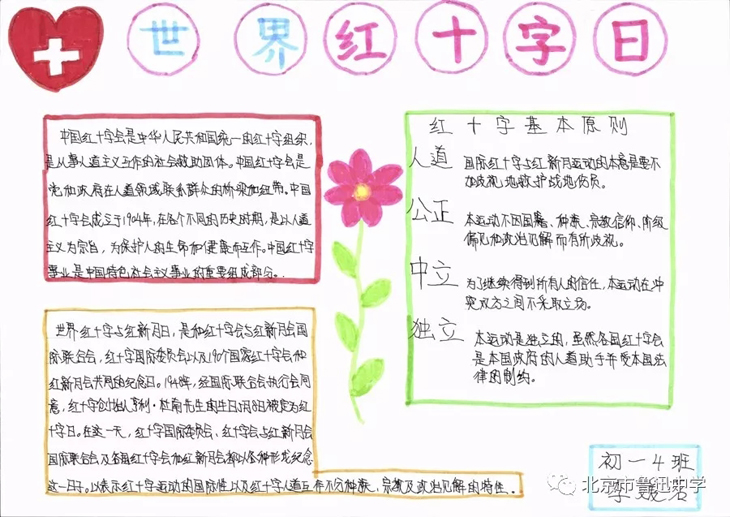 世界红十字日
中国红十字会是中华人民共和国统一的红十字组织，
是从事人道主义工作的社会救助团体。中国红十字会是
党和政府在人道领域联系群众的桥梁和纽带。中国
红十字会成立于1904年，在各个不同的历史时期，是以人道
主义为宗旨，为保护人的生命和健康而工作。中国红十字
事业是中国特色社会主义事业的重要组成部分。
世界红十字与红新月日，是红十字会与红新月会国
际联合会，红十字国际委员会以及190个国家红十字会和
红新月会共同的纪念日。1948年，经国际联合会执行会同
意，红十字创始人亨利·杜南先生的生日5月8日被定为红
十字日。在这一天，红十字国际委员会、红十字会与红新月会
国际联合会及各国红十字会和红新月会都以各种形式纪念
这一日子。以表示红十字运动的国际性以及红十字人道工作不分种族、宗教及政治见解的特性。
红十字基本原则
人道 国际红十字与红新月运动的本意是要不
加歧视地救护战地伤员。
公正 本运动不因国籍、种族、宗教信仰、阶级
偏见和政治见解而有所歧视。
中立 为了继续得到所有人的信任，本运动在冲
突双方之间不采取立场。
独立 本运动是独立的，虽然各国红十字会
是本国政府的人道助手并受本国法
律的制约。
初一4班
北京市鲁迅中学